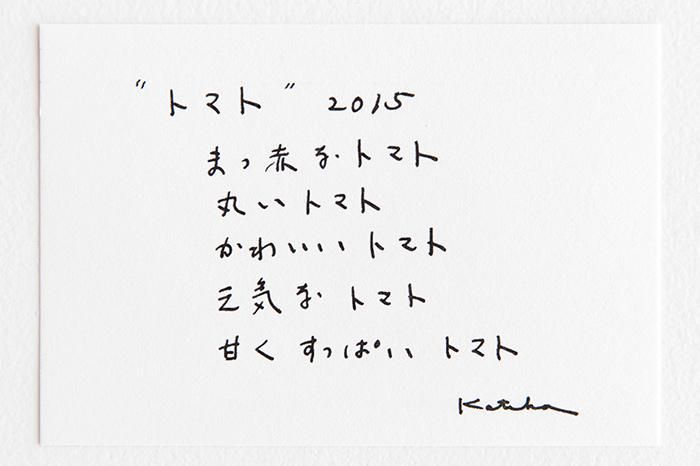 "トマト" 2015
まっ赤なトマト
丸いトマト
かわいい トマト
元気な トマト
甘く すっぱい トマト